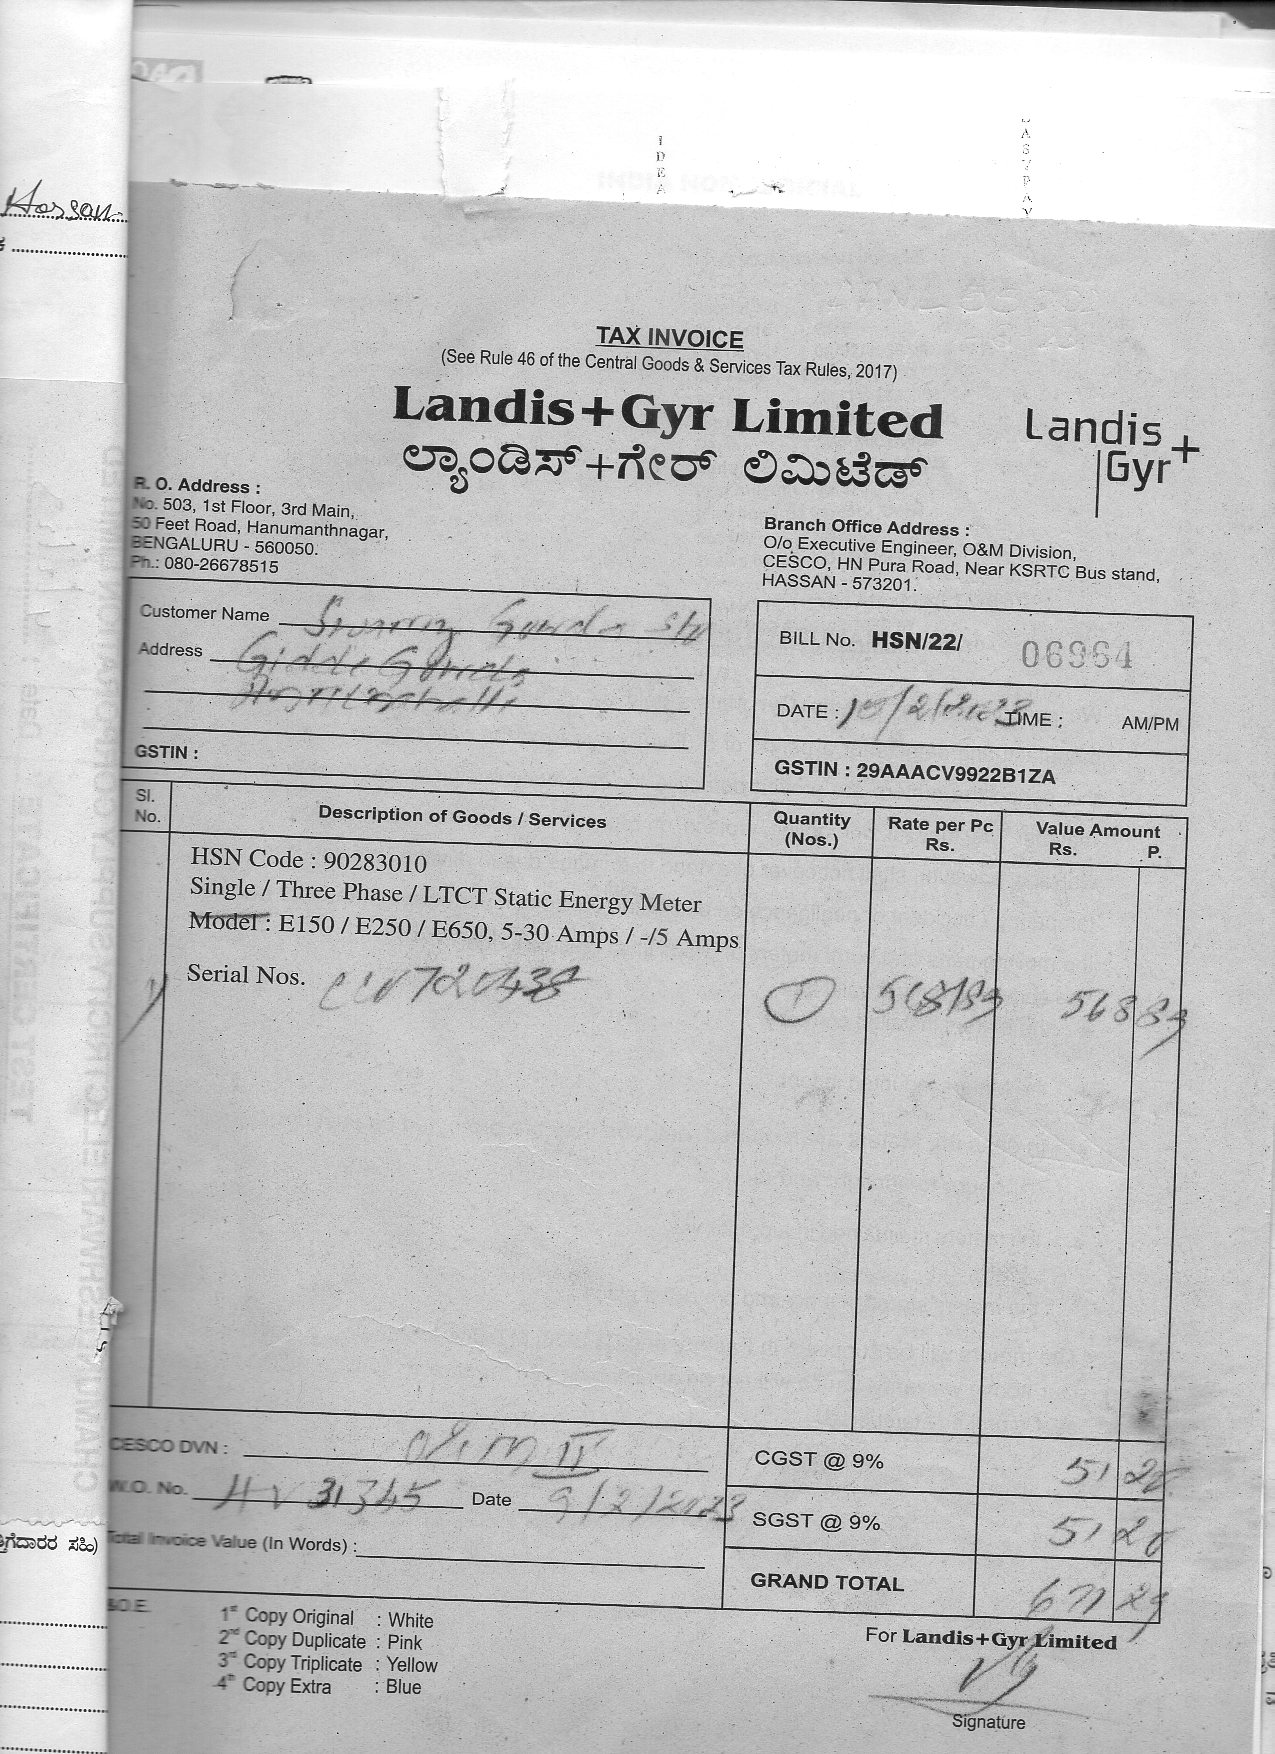 Hassan
IDEA
TAX INVOICE
(See Rule 46 of the Central Goods & Services Tax Rules, 2017)
Landis+Gyr Limited
ಲ್ಯಾಂಡಿಸ್+ಗೇರ್ ಲಿಮಿಟೆಡ್
Landis+
Gyr
R. O. Address :
No. 503, 1st Floor, 3rd Main,
50 Feet Road, Hanumanthnagar,
BENGALURU - 560050.
Ph.: 080-26678515
Branch Office Address :
O/o Executive Engineer, O&M Division,
CESCO, HN Pura Road, Near KSRTC Bus stand,
HASSAN - 573201.
Customer Name
Address
GSTIN :
BILL No. HSN/22/ 06964
DATE : /2/2023 TIME : AM/PM
GSTIN : 29AAACV9922B1ZA
Sl. No. Description of Goods / Services Quantity (Nos.) Rate per Pc Rs. Value Amount Rs. P.
HSN Code : 90283010
Single / Three Phase / LTCT Static Energy Meter
Model : E150 / E250 / E650, 5-30 Amps / -/5 Amps
Serial Nos. 1 568/83 568 83
CESCO DVN :
CGST @ 9% 51
W.O. No. 31345 Date 9/2/2023
SGST @ 9% 51 20
Total Invoice Value (In Words) :
GRAND TOTAL 671 23
S.O.E.
1st Copy Original : White
2nd Copy Duplicate : Pink
3rd Copy Triplicate : Yellow
4th Copy Extra : Blue
For Landis+Gyr Limited
Signature